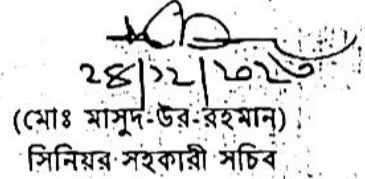 ২৪|১২|২০২৩
(মোঃ মাসুদ-উর-রহমান)
সিনিয়র সহকারী সচিব